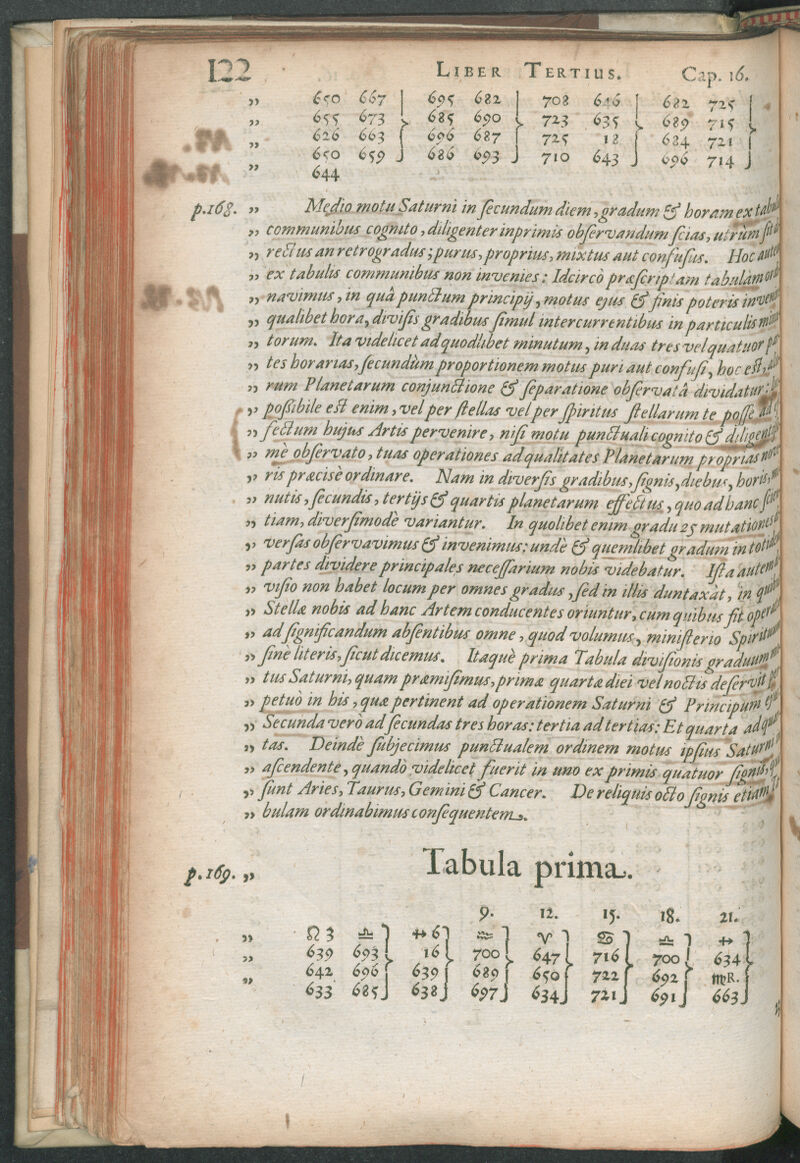 122 LIBER TERTIUS. Cap. 16.
„ 650 667 | 695 682 | 708 646 | 682 725
„ 655 673 } 685 690 } 723 635 } 689 715 }
„ 626 663 696 687 725 18 684 721
„ 650 659 686 693 710 643 696 714
„ 644
p.168. „ Medio motu Saturni in secundum diem, gradum & horam ex
„ communibus cognito, diligenter inprimis observandum scias, utrùm
„ rectus an retrogradus; purus, proprius, mixtus aut confusus. Hoc
„ ex tabulis communibus non invenies: Idcircò præscriptam tabulam
„ navimus, in quâ punctum principij, motus ejus & finis poteris
„ qualibet hora, divisis gradibus simul intercurrentibus in particulis
„ torum. Ita videlicet ad quodlibet minutum, in duas tres vel quatuor
„ tes horarias, secundùm proportionem motus puri aut confusi, hoc est,
„ rum Planetarum conjunctione & separatione observatâ dividatur:
„ possibile est enim, vel per stellas vel per spiritus stellarum te posse
„ fectum hujus Artis pervenire, nisi motu punctuali cognito &
„ mè observato, tuas operationes ad qualitates Planetarum proprias
„ ris præcisè ordinare. Nam in diversis gradibus, signis, diebus, horis,
„ nutis, secundis, tertijs & quartis planetarum effectus, quo ad hanc
„ tiam, diversimodè variantur. In quolibet enim gradu 25 mutationes
„ versas observavimus & invenimus: undè & quemlibet gradum in
„ partes dividere principales necessarium nobis videbatur. Ista autem
„ visio non habet locum per omnes gradus, sed in illis duntaxat, in
„ Stellæ nobis ad hanc Artem conducentes oriuntur, cum quibus fit
„ ad significandum absentibus omne, quod volumus, ministerio
„ sine literis, sicut dicemus. Itaquè prima Tabula divisionis graduum
„ tus Saturni, quam præmisimus, primæ quartæ diei vel noctis deservit
„ petuò in his, quæ pertinent ad operationem Saturni & Principum
„ Secunda verò ad secundas tres horas: tertia ad tertias: Et quarta ad
„ tas. Deindè subjecimus punctualem ordinem motus ipsius Saturni
„ ascendente, quandò videlicet fuerit in uno ex primis quatuor
„ sunt Aries, Taurus, Gemini & Cancer. De reliquis octo signis etiam
„ bulam ordinabimus consequentem.
p.169. „ Tabula prima.
9. 12. 15. 18. 21.
„ ♌ 3 ♎ } ♐ 6 } ♒ } ♈ } ♋ } ♎ } ♐ }
„ 639 693 16 700 647 716 700 634
„ 642 696 639 689 650 722 692 ♏R.
633 685 638 697 634 721 691 663